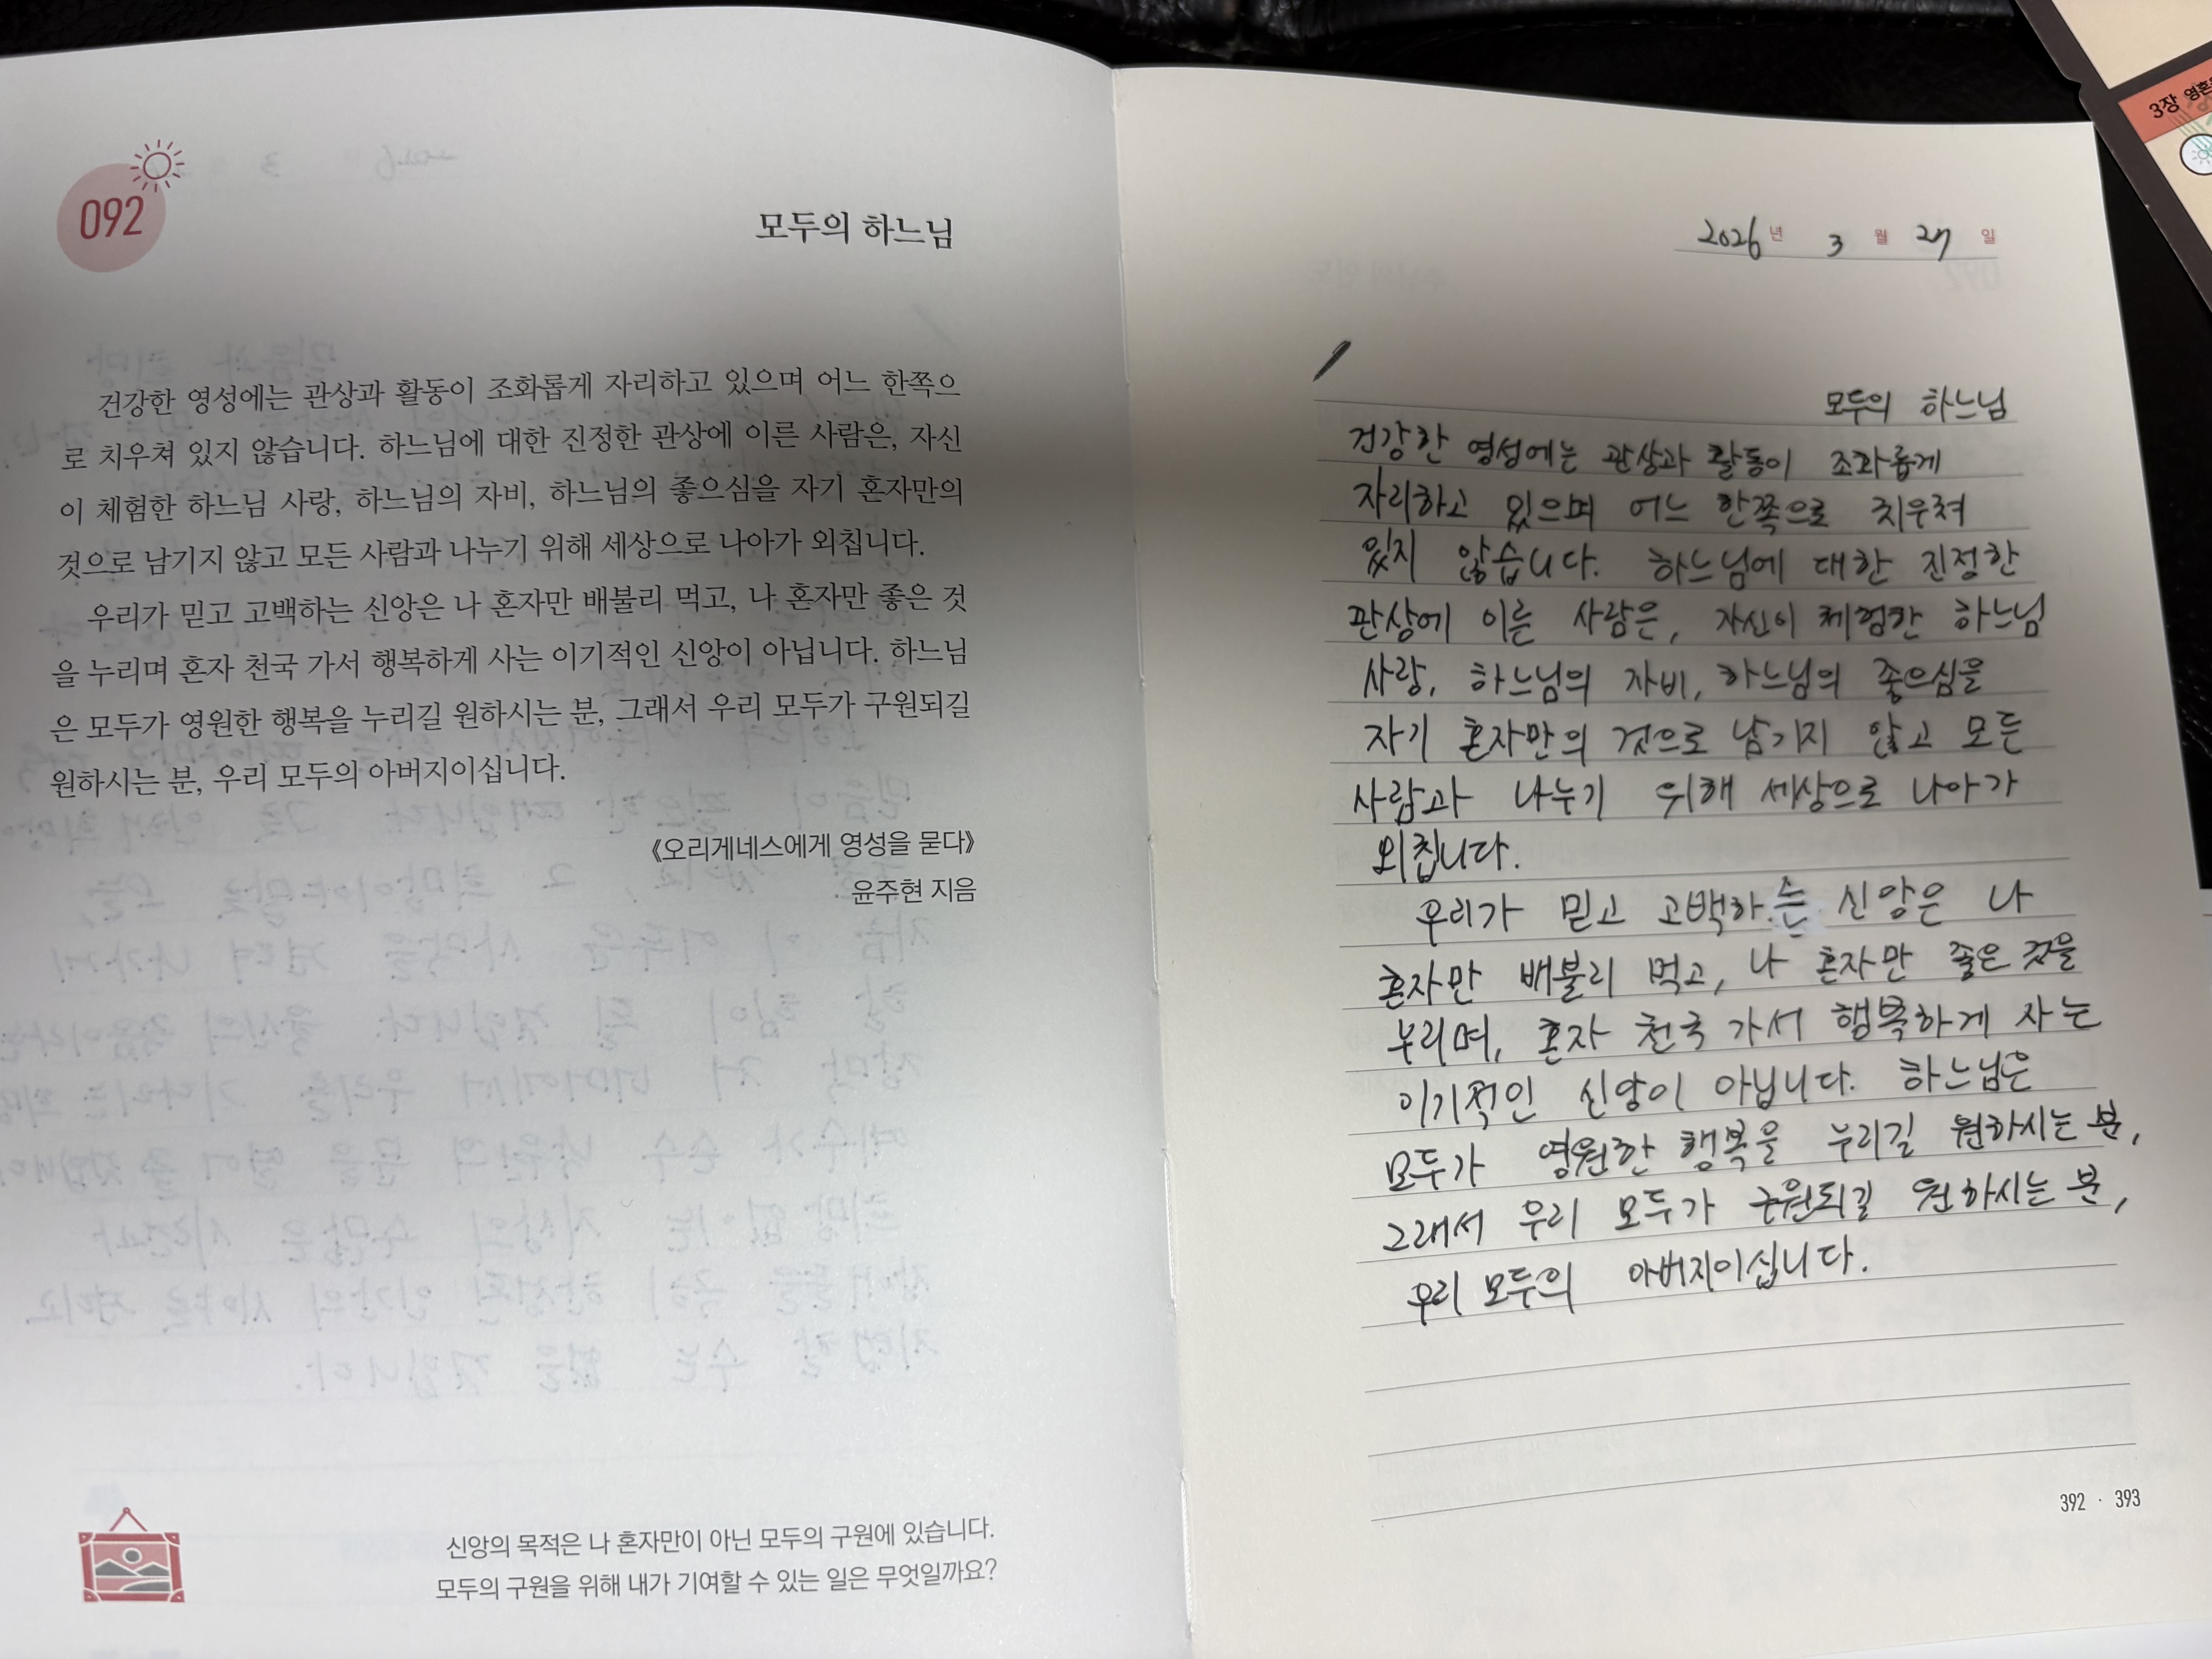 092
모두의 하느님
건강한 영성에는 관상과 활동이 조화롭게 자리하고 있으며 어느 한쪽으
로 치우쳐 있지 않습니다. 하느님에 대한 진정한 관상에 이른 사람은, 자신
이 체험한 하느님 사랑, 하느님의 자비, 하느님의 좋으심을 자기 혼자만의
것으로 남기지 않고 모든 사람과 나누기 위해 세상으로 나아가 외칩니다.
우리가 믿고 고백하는 신앙은 나 혼자만 배불리 먹고, 나 혼자만 좋은 것
을 누리며 혼자 천국 가서 행복하게 사는 이기적인 신앙이 아닙니다. 하느님
은 모두가 영원한 행복을 누리길 원하시는 분, 그래서 우리 모두가 구원되길
원하시는 분, 우리 모두의 아버지이십니다.
《오리게네스에게 영성을 묻다》
윤주현 지음
신앙의 목적은 나 혼자만이 아닌 모두의 구원에 있습니다.
모두의 구원을 위해 내가 기여할 수 있는 일은 무엇일까요?
2026년 3월 27일
모두의 하느님
건강한 영성에는 관상과 활동이 조화롭게
자리하고 있으며 어느 한쪽으로 치우쳐
있지 않습니다. 하느님에 대한 진정한
관상에 이른 사람은, 자신이 체험한 하느님
사랑, 하느님의 자비, 하느님의 좋으심을
자기 혼자만의 것으로 남기지 않고 모든
사람과 나누기 위해 세상으로 나아가
외칩니다.
우리가 믿고 고백하는 신앙은 나
혼자만 배불리 먹고, 나 혼자만 좋은 것을
누리며, 혼자 천국 가서 행복하게 사는
이기적인 신앙이 아닙니다. 하느님은
모두가 영원한 행복을 누리길 원하시는 분,
그래서 우리 모두가 구원되길 원하시는 분,
우리 모두의 아버지이십니다.
392 · 393
3장 영혼